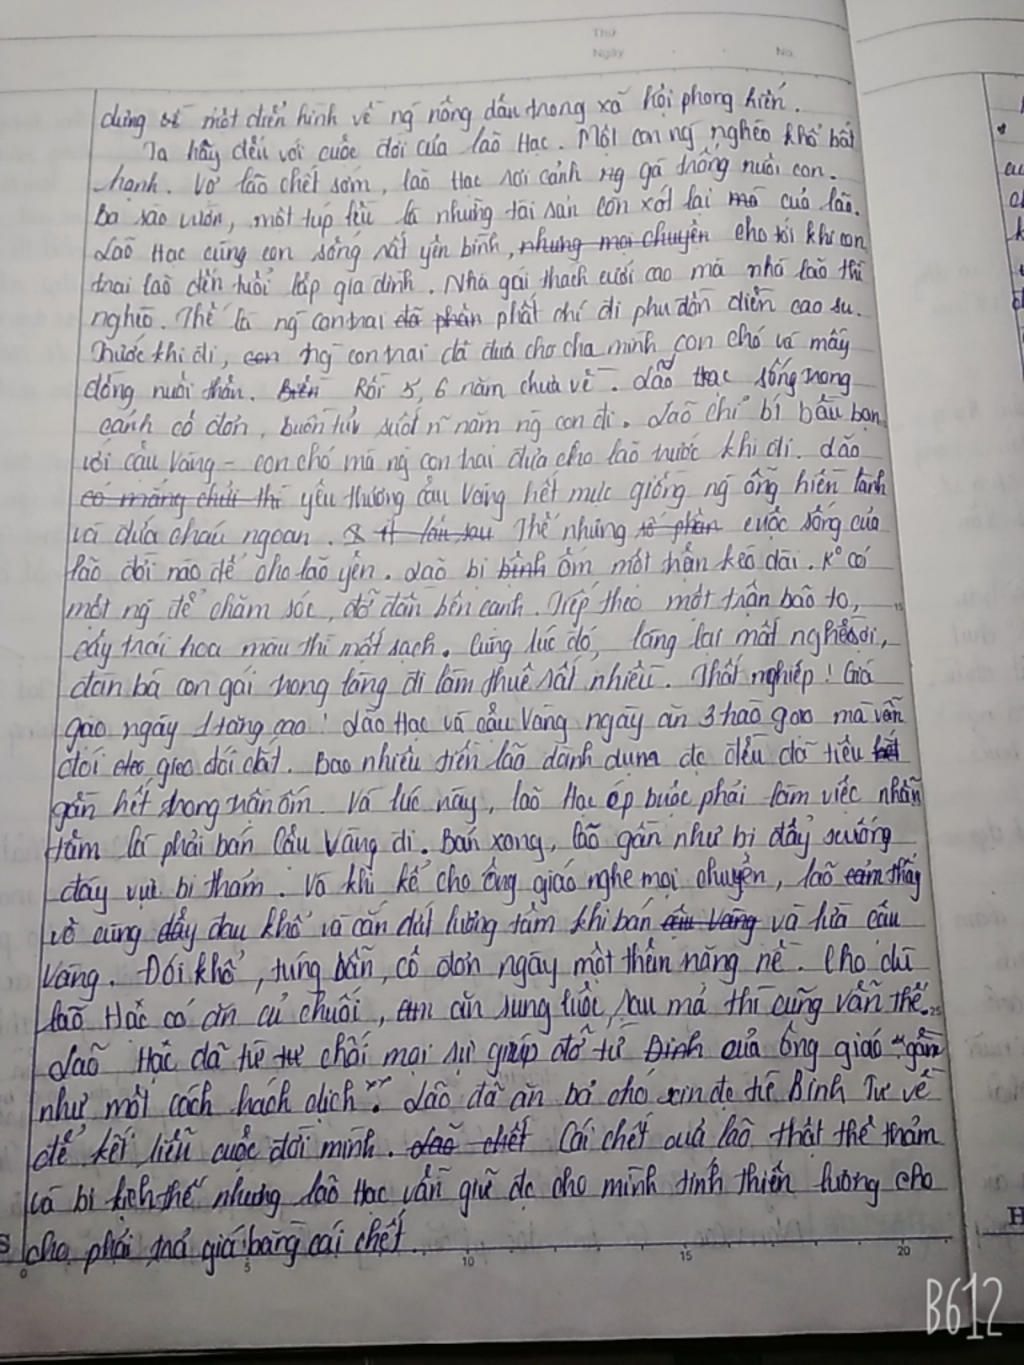 Thứ
Ngày No.
dựng số một điển hình về ng nông dân trong xã hội phong kiến.
Ta hãy đến với cuộc đời của lão Hạc. Một con ng nghèo khổ bất
hạnh. Vợ lão chết sớm, lão Hạc rơi cảnh ng gà trống nuôi con.
Ba sào vườn, một túp lều là những tài sản còn xót lại mà của lão.
Lão Hạc cùng con sống rất yên bình, nhưng mọi chuyện cho tới khi con
trai lão đến tuổi lập gia đình. Nhà gái thách cưới cao mà nhà lão thì
nghèo. Thế là ng con trai đã phẫn phất chí đi phu đồn điền cao su.
Trước khi đi, con ng con trai đã đưa cho cha mình con chó và mấy
đồng nuôi thân. Biền Rồi 5, 6 năm chưa về. Lão Hạc sống trong
cảnh cô đơn, buồn tủi suốt n~ năm ng con đi. Lão chỉ bí bầu bạn
với cậu Vàng - con chó mà ng con trai đưa cho lão trước khi đi. Lão
có mắng chửi thì yêu thương cậu Vàng hết mực giống ng ông hiền lành
và đứa cháu ngoan. Ít lâu sau Thế nhưng số phận cuộc sống của
lão đời nào để cho lão yên. Lão bị bệnh ốm một trận kéo dài. K° có
một ng để chăm sóc, đỡ đần bên cạnh. Tiếp theo một trận bão to,
cây trái hoa màu thì mất sạch. Cùng lúc đó, làng lại mất nghề sợi,
đàn bà con gái trong làng đi làm thuê rất nhiều. Thất nghiệp! Giá
gạo ngày 1 tăng cao! Lão Hạc và cậu Vàng ngày ăn 3 hào gạo mà vẫn
đói deo gieo đói dắt. Bao nhiêu tiền lão dành dụm đc đều đã tiêu hết
gần hết trong trận ốm. Và lúc này, lão Hạc ép buộc phải làm việc nhẫn
tâm là phải bán Cậu Vàng đi. Bán xong, lão gần như bị đẩy xuống
đáy vực bi thảm. Và khi kể cho ông giáo nghe mọi chuyện, lão cảm thấy
vô cùng đầy đau khổ và cắn dứt lương tâm khi bán cậu Vàng và lừa cậu
Vàng. Đói khổ, túng bấn, cô đơn ngày một thêm nặng nề. Cho dù
lão Hạc có ăn củ chuối, ăn sung luộc, rau má thì cũng vẫn thế.
Lão Hạc đã từ từ chối mọi sự giúp đỡ từ Binh của ông giáo "gần
như một cách hách dịch". Lão đã ăn bả chó xin đc từ Binh Tư về
để kết liễu cuộc đời mình. Lão chết Cái chết của lão thật thê thảm
và bi kịch thế nhưng lão Hạc vẫn giữ đc cho mình tính thiện lương cho
cho phải trả giá bằng cái chết.
S 0 5 10 15 20
15
25
H
B612